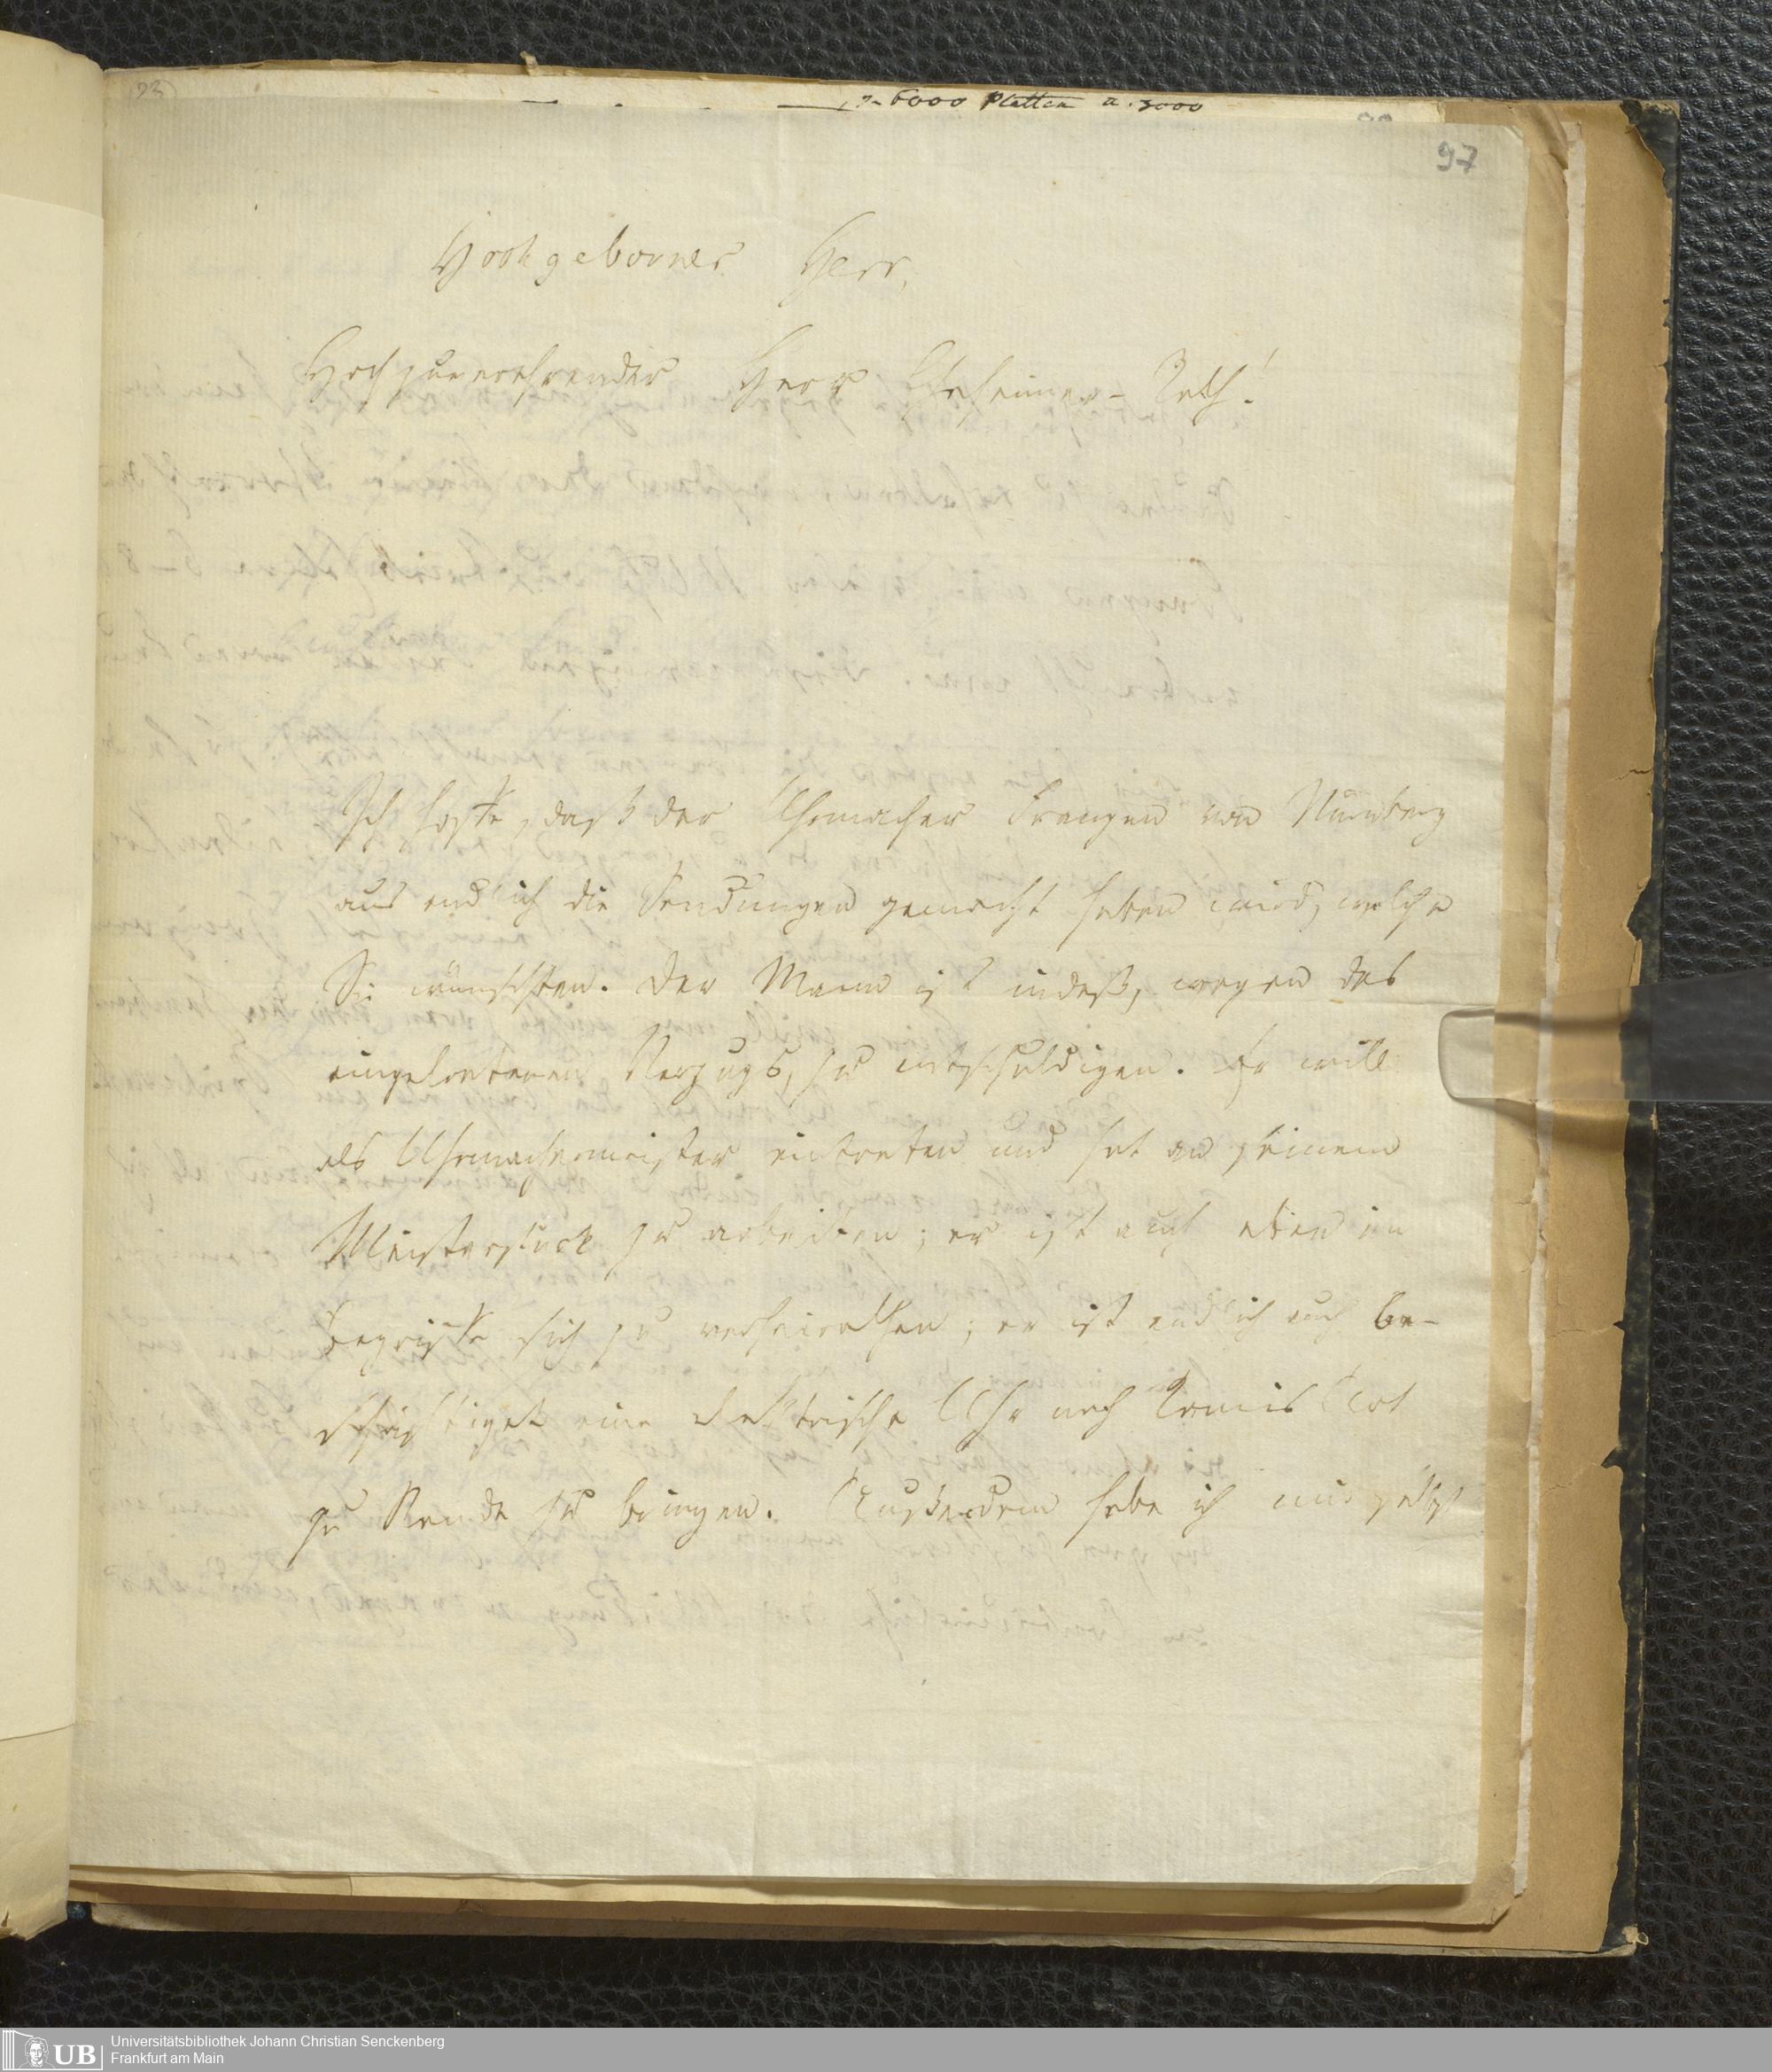 97
6000 Platten a. 3000
Hochgeborner Herr,
Hochzuverehrender Herr Geheimer-Rath!
Ich hoffe, daß der Uhrmacher von Nürnberg
aus endlich die Sendungen gemacht haben wird, welche
Sie wünschten. Der Mann ist indeß, wegen des
eingetretenen Verzugs, zu entschuldigen. Er will
als Uhrmachermeister eintreten und hat an seinem
Meisterstück zu arbeiten; er ist auch eben im
Begriffe sich zu verheirathen; er ist endlich auch be-
schäftiget eine elektrische Uhr nach Art
zu Stande zu bringen. Außerdem habe ich mir selbst
Universitätsbibliothek Johann Christian Senckenberg
Frankfurt am Main
UB